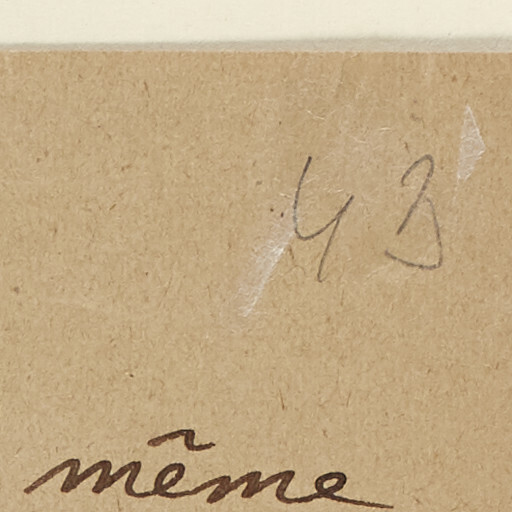 43
même